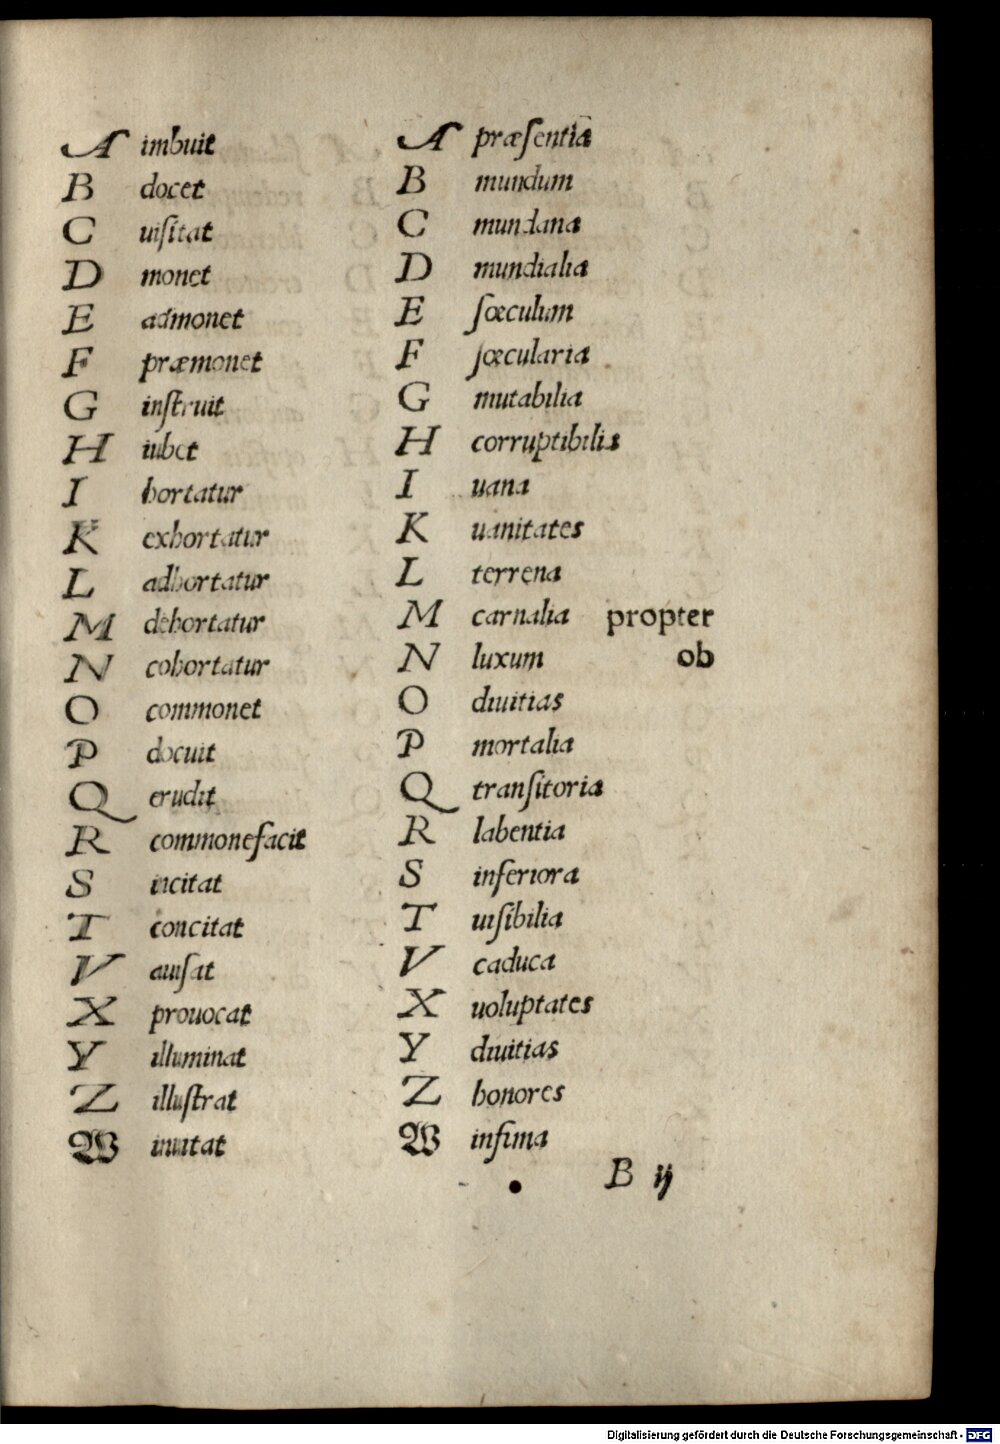 A imbuit
B docet
C uiſitat
D monet
E admonet
F præmonet
G inſtruit
H iubet
I hortatur
K exhortatur
L adhortatur
M dehortatur
N cohortatur
O commonet
P docuit
Q erudit
R commonefacit
S incitat
T concitat
V auiſat
X prouocat
Y illuminat
Z illuſtrat
W inuitat
A præſentia
B mundum
C mundana
D mundialia
E ſœculum
F ſœcularia
G mutabilia
H corruptibilis
I uana
K uanitates
L terrena
M carnalia propter
N luxum ob
O diuitias
P mortalia
Q tranſitoria
R labentia
S inferiora
T uiſibilia
V caduca
X uoluptates
Y diuitias
Z honores
W infima
B ij
Digitalisierung gefördert durch die Deutsche Forschungsgemeinschaft - DFG